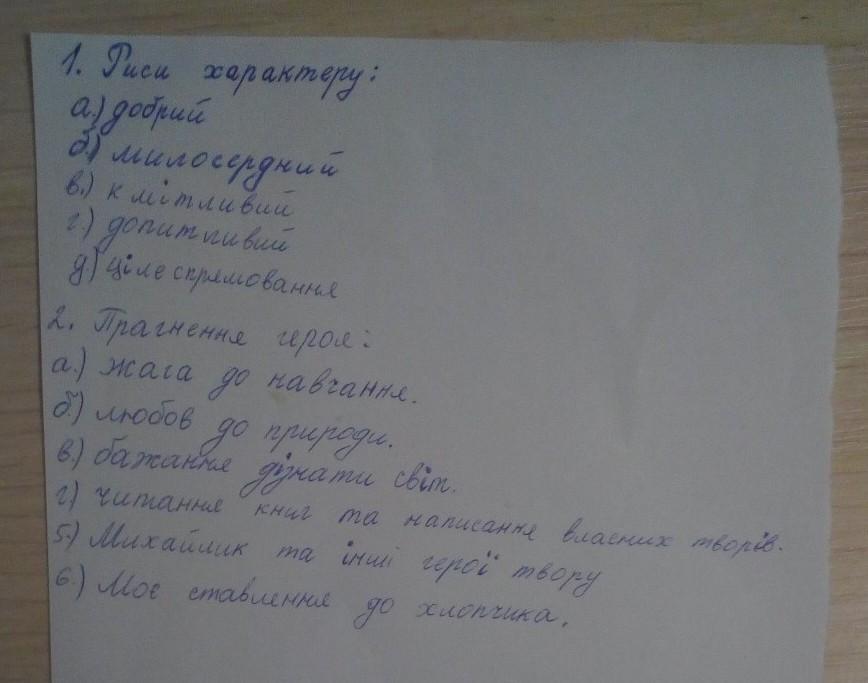 1. Риси характеру:
а.) добрий
б.) милосердний
в.) кмітливий
г.) допитливий
д.) цілеспрямовання
2. Прагнення героя:
а.) жага до навчання.
б.) любов до природи.
в.) бажання дізнати світ.
г.) читання книг та написання власних творів.
5.) Михайлик та інші герої твору
6.) Моє ставлення до хлопчика.